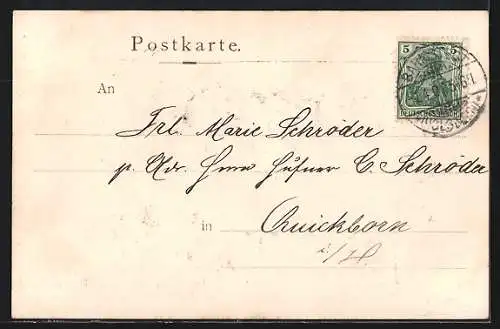 Postkarte.
5 5
DEUTSCHES REICH
An
Frl. Marie Schröder
p. Adr. Herrn Hufner C. Schröder
in Quickborn
i./H.